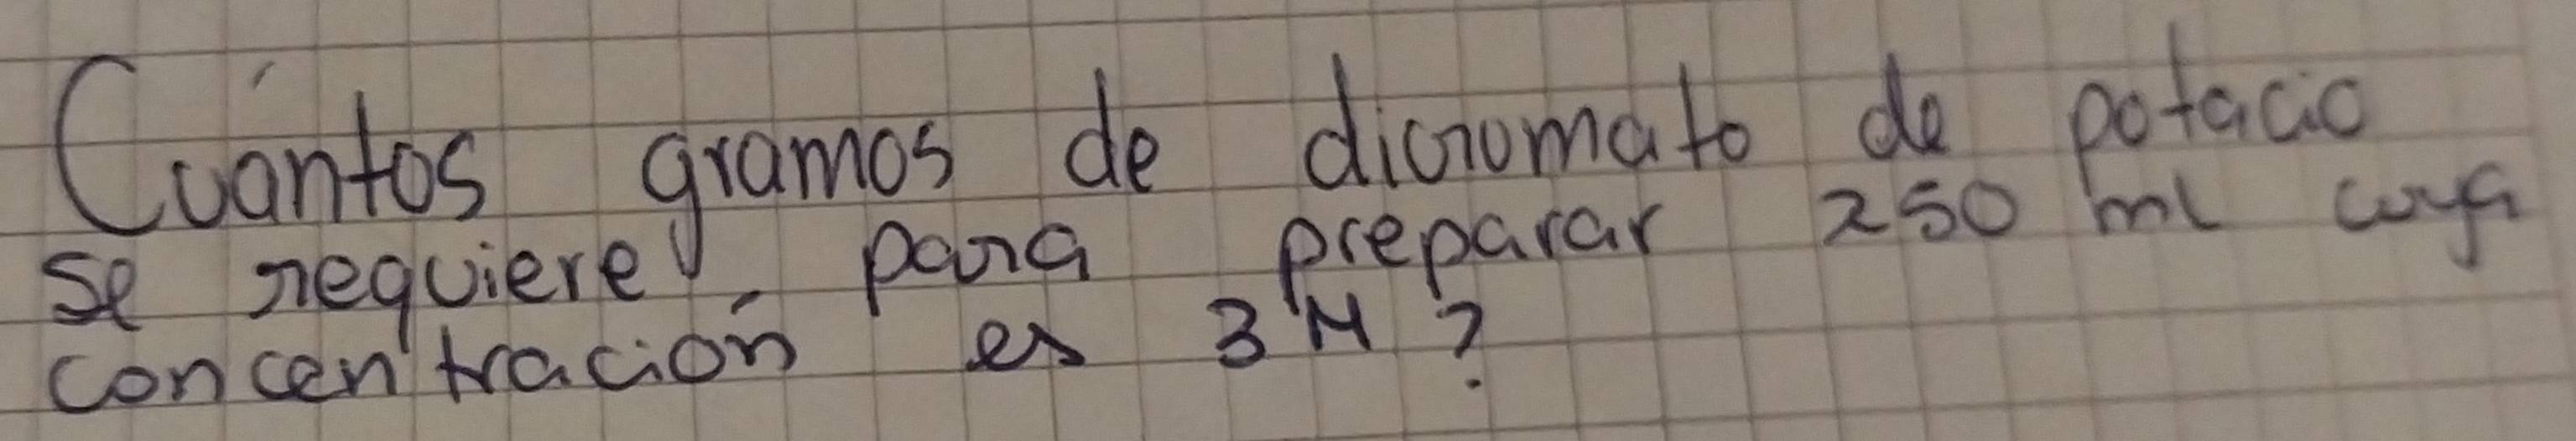 Cuántos gramos de dicromato de potacio
se requiere para preparar 250 ml cuya
concentración es 3 M ?